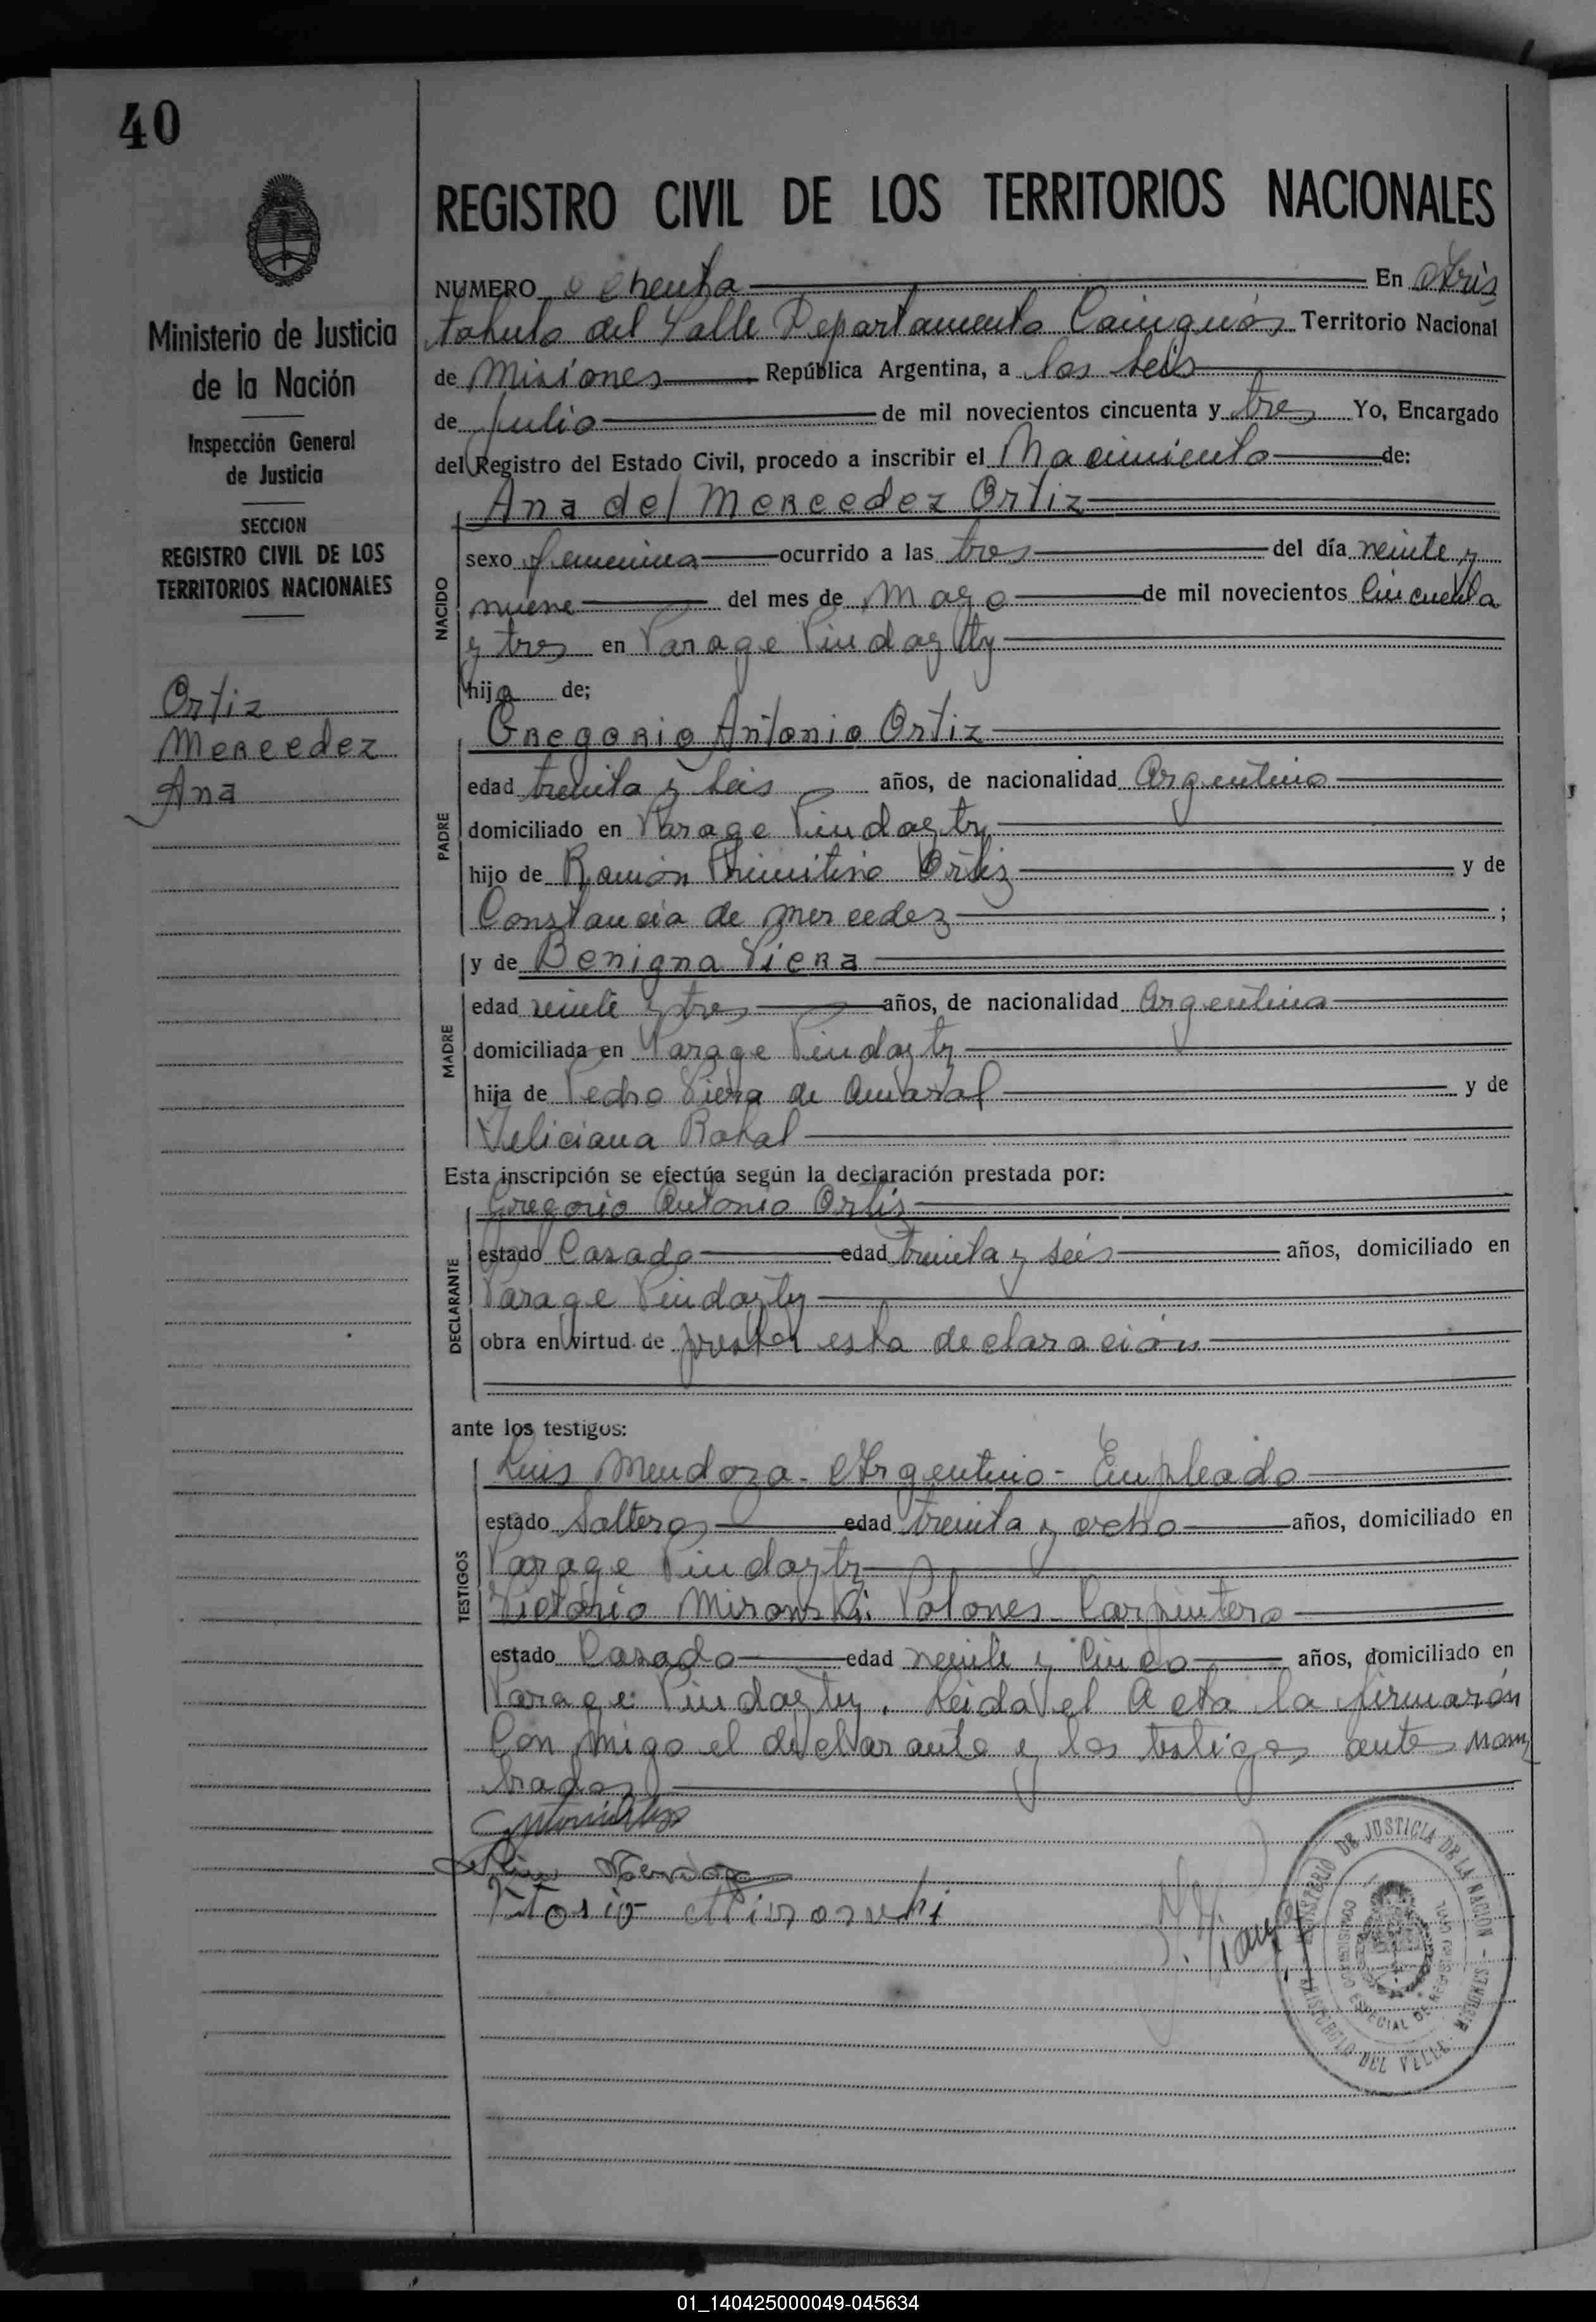 40
Ministerio de Justicia
de la Nación
Inspección General
de Justicia
SECCION
REGISTRO CIVIL DE LOS
TERRITORIOS NACIONALES
Ortiz
Mercedez
Ana
REGISTRO CIVIL DE LOS TERRITORIOS NACIONALES
NUMERO ochenta En Aris
tobulo del Valle Departamento Cainguás Territorio Nacional
de Misiones República Argentina, a los seis
de Julio de mil novecientos cincuenta y tres Yo, Encargado
del Registro del Estado Civil, procedo a inscribir el Nacimiento de:
Ana del Mercedez Ortiz
NACIDO
sexo femenina ocurrido a las tres del día veinte y
nueve del mes de Mayo de mil novecientos Cincuenta
y tres en Parage Pindayty
hija de;
Gregorio Antonio Ortiz
PADRE
edad treinta y seis años, de nacionalidad Argentino
domiciliado en Parage Pindayty
hijo de Ramón Primitivo Ortiz y de
Constancia de Mercedez ;
y de Benigna Viera
MADRE
edad veinte y tres años, de nacionalidad Argentina
domiciliada en Parage Pindayty
hija de Pedro Viera de Amaral y de
Feliciana
Esta inscripción se efectúa según la declaración prestada por:
Gregorio Antonio Ortiz
DECLARANTE
estado Casado edad treinta y seis años, domiciliado en
Parage Pindayty
obra en virtud de prestar esta declaración
ante los testigos:
TESTIGOS
Luis Mendoza - Argentino - Empleado
estado Soltero edad treinta y ocho años, domiciliado en
Parage Pindayty
Victorio Mironski Polones - Carpintero
estado Casado edad veinte y cinco años, domiciliado en
Parage Pindayty. Leida el Acta la firmarón
Con migo el declarante y los testigos antes nom
brados
Luis Mendoza
MINISTERIO DE JUSTICIA DE LA NACIÓN - MISIONES
ARISTOBULO DEL VALLE
01_140425000049-045634